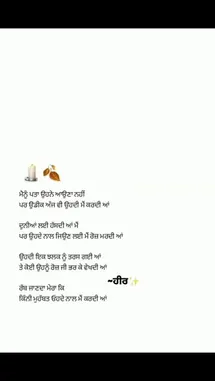 ਮੈਨੂੰ ਪਤਾ ਉਹਨੇ ਆਉਣਾ ਨਹੀਂ
ਪਰ ਉਡੀਕ ਅੱਜ ਵੀ ਉਹਦੀ ਮੈਂ ਕਰਦੀ ਆਂ
ਦੁਨੀਆਂ ਲਈ ਹੱਸਦੀ ਆਂ ਮੈਂ
ਪਰ ਉਹਦੇ ਨਾਲ ਜਿਉਣ ਲਈ ਮੈਂ ਰੋਜ਼ ਮਰਦੀ ਆਂ
ਉਹਦੀ ਇਕ ਝਲਕ ਨੂੰ ਤਰਸ ਗਈ ਆਂ
ਤੇ ਕੋਈ ਉਹਨੂੰ ਰੋਜ਼ ਜੀ ਭਰ ਕੇ ਵੇਖਦੀ ਆਂ
~ਹੀਰ
ਰੱਬ ਜਾਣਦਾ ਮੇਰਾ ਕਿ
ਕਿੰਨੀ ਮੁਹੱਬਤ ਓਹਦੇ ਨਾਲ ਮੈਂ ਕਰਦੀ ਆਂ